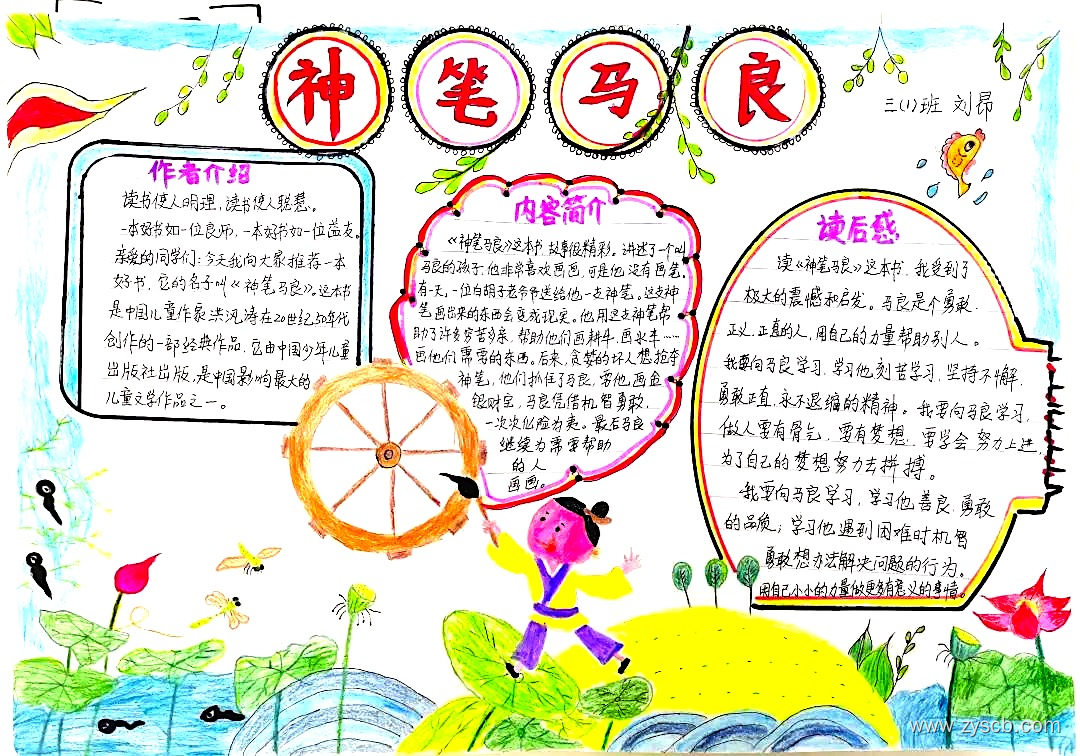 神笔马良
三(1)班 刘昂
作者介绍
读书使人明理，读书使人聪慧。
一本好书如一位良师，一本好书如一位益友。
亲爱的同学们：今天我向大家推荐一本
好书，它的名子叫《神笔马良》。这本书
是中国儿童作家洪汛涛在20世纪50年代
创作的一部经典作品，它由中国少年儿童
出版社出版，是中国影响最大的
儿童文学作品之一。
内容简介
《神笔马良》这本书，故事很精彩。讲述了一个叫
马良的孩子，他非常喜欢画画，可是他没有画笔，
有一天，一位白胡子老爷爷送给他一支神笔。这支神
笔画出来的东西会变成现实。他用这支神笔帮
助了许多穷苦乡亲，帮助他们画耕牛、画水车……
画他们需要的东西。后来，贪婪的坏人想抢夺
神笔，他们抓住了马良，需他画金
银财宝，马良凭借机智勇敢，
一次次化险为夷。最后马良
继续为需要帮助
的人
画画。
读后感
读《神笔马良》这本书，我受到了
极大的震憾和启发。马良是个勇敢、
正义、正直的人，用自己的力量帮助别人。
我要向马良学习，学习他刻苦学习，坚持不懈，
勇敢正直，永不退缩的精神。我要向马良学习，
做人要有骨气，要有梦想，要学会努力上进，
为了自己的梦想努力去拼搏。
我要向马良学习，学习他善良、勇敢
的品质；学习他遇到困难时机智
勇敢想办法解决问题的行为。
用自己小小的力量做更多有意义的事情。
www.zyscb.com